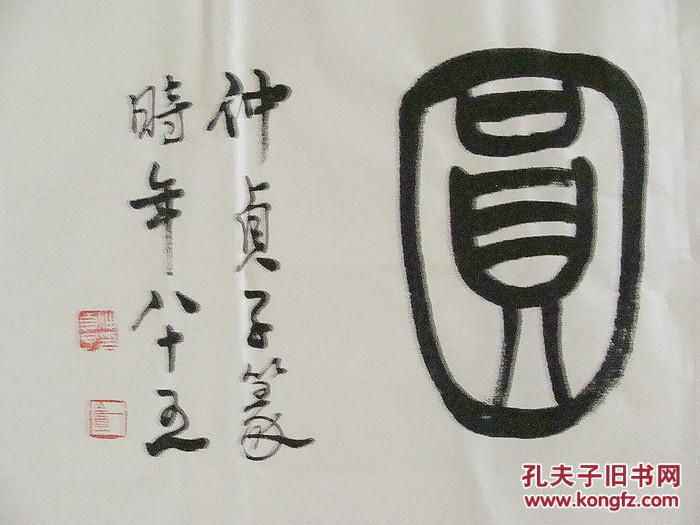 圓
仲貞子篆
時年八十五
孔夫子旧书网
www.kongfz.com